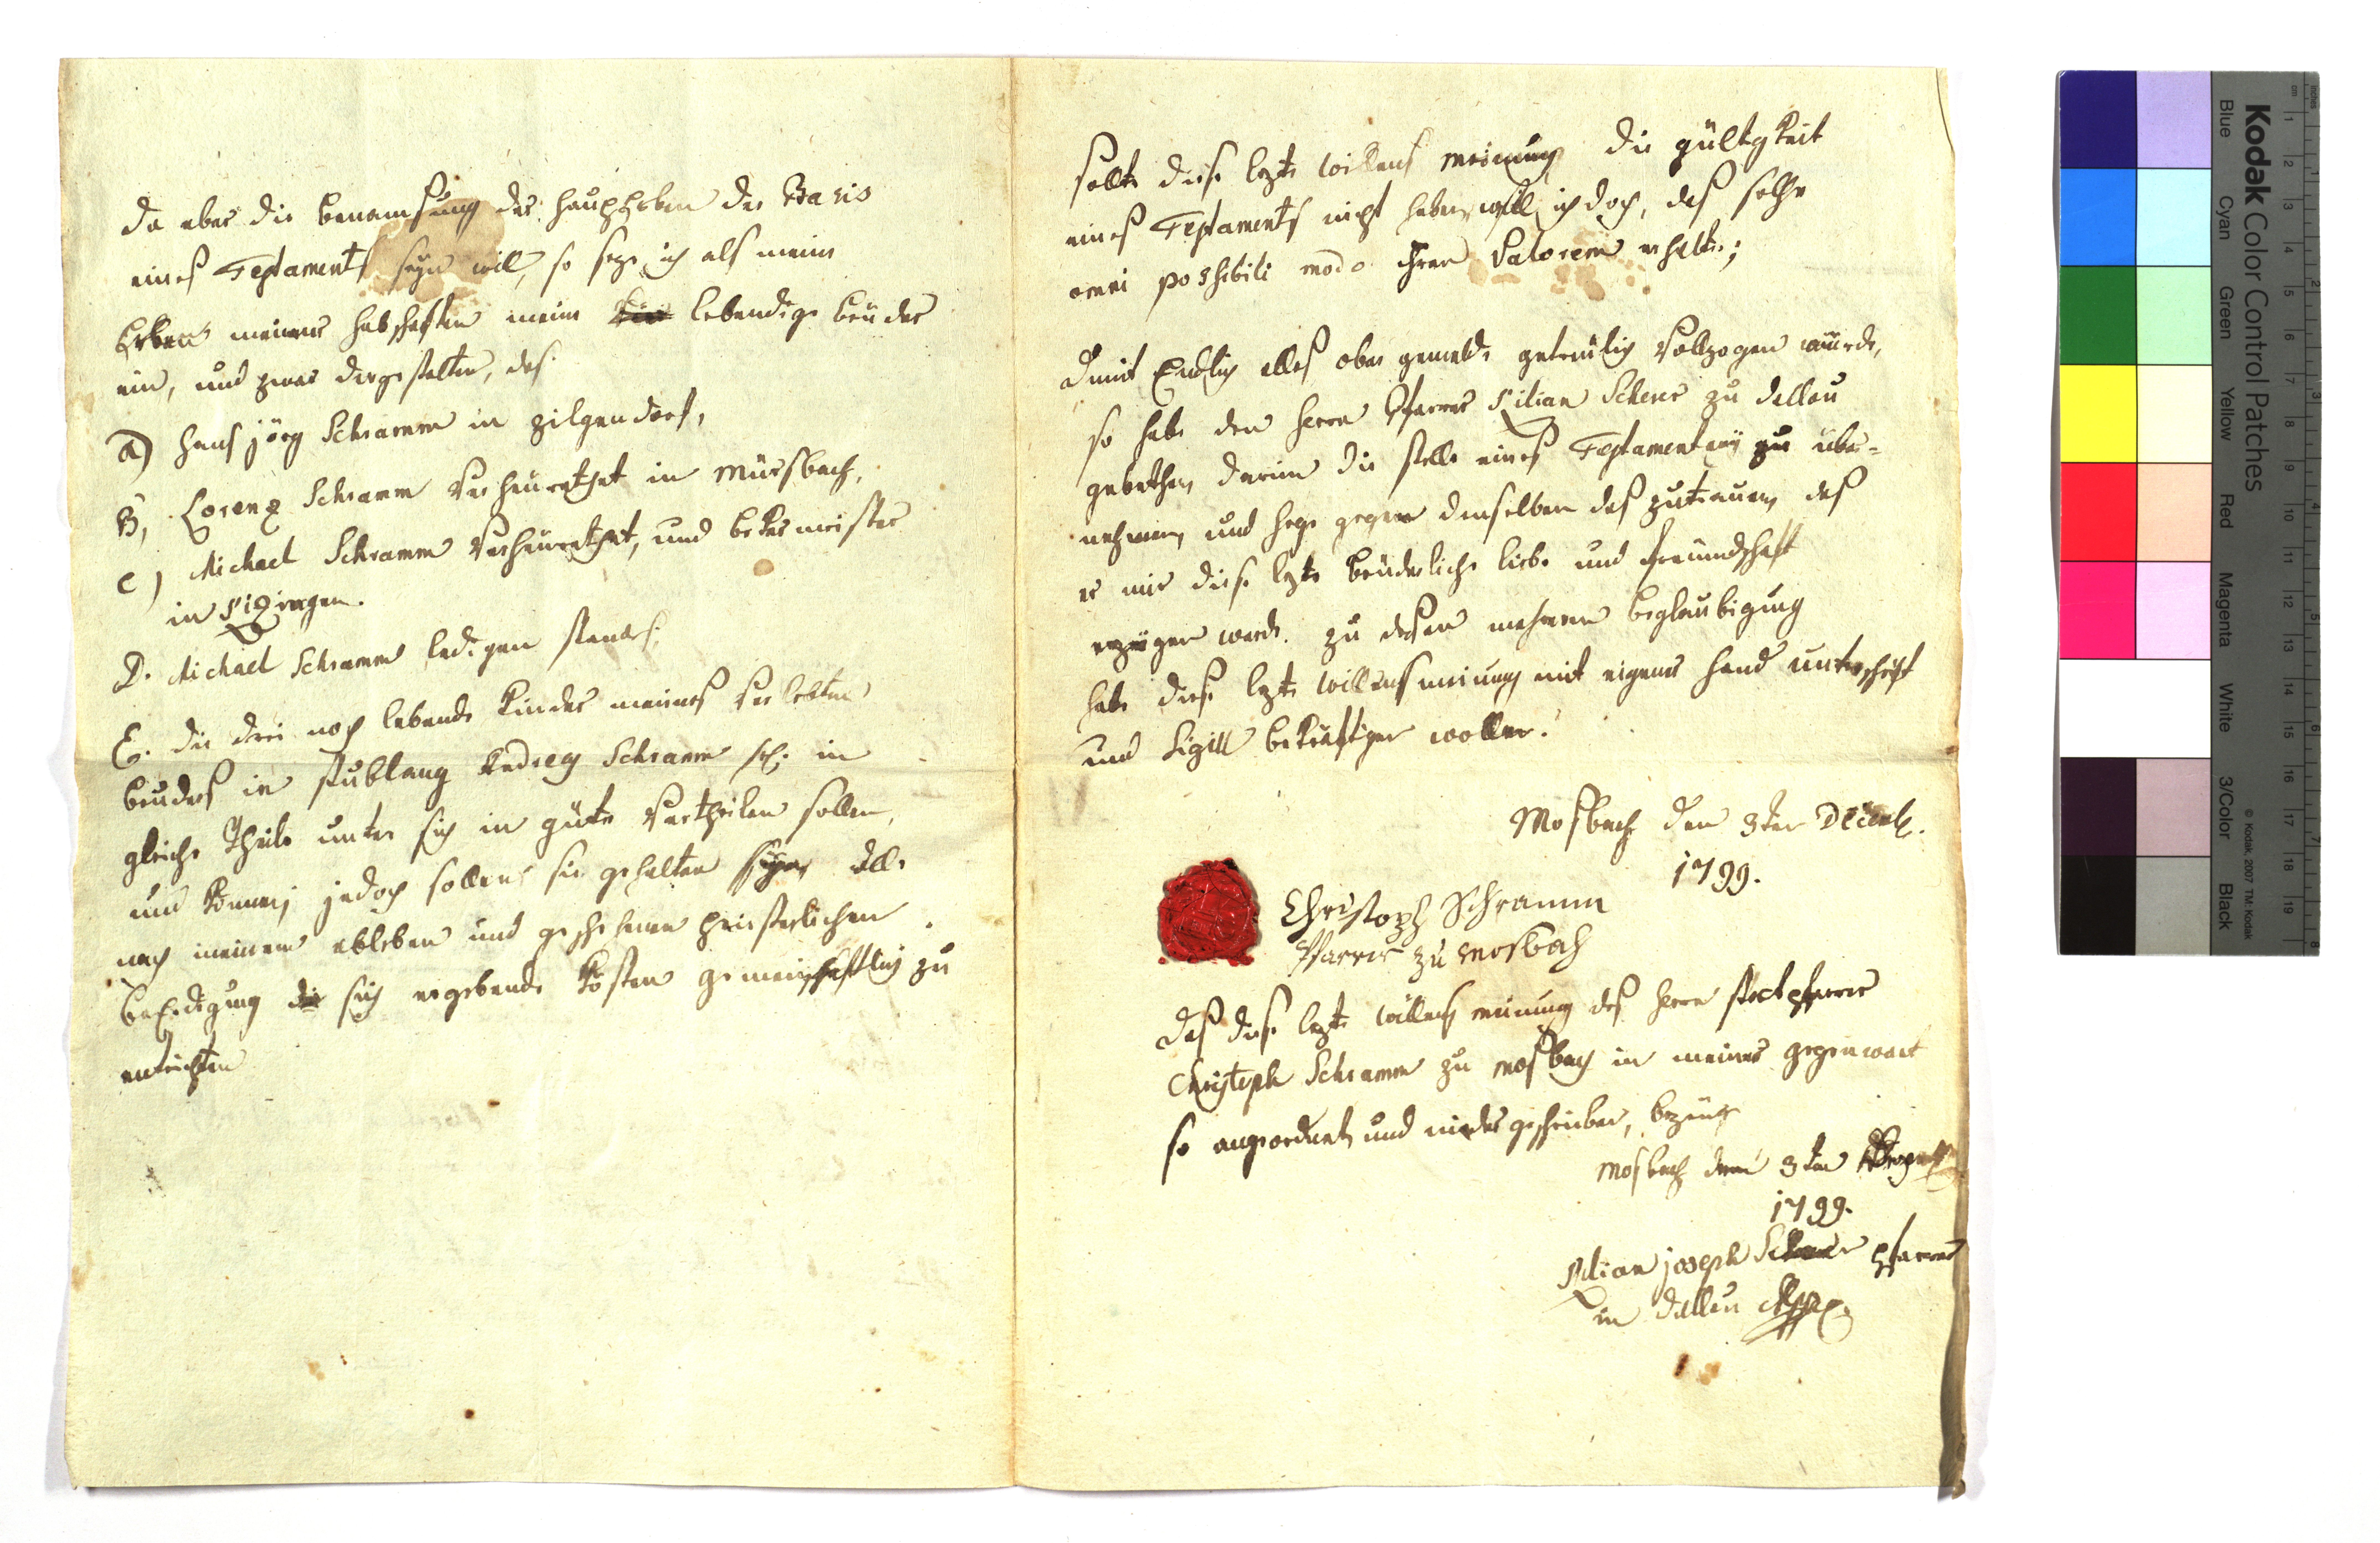 da aber die benamsung des Haupterben der Basis
eines Testaments seyn will, so seze ich als meine
Erben meiner habschaften meine lebendige brüder
ein, und zwar dergestalten, daß
a) Hans jörg Schramm in zilgendorf,
B, Lorenz Schramm verheurathet in Mürsbach,
c) Michael Schramm verheurathet, und bekermeister
in Kizingen.
D. Michael Schramm ledigen standes.
E. die drei noch lebende Kinder meines verlebten
bruders in stublang Andreas Schramm sel. in
gleiche Theile unter sich in güte vertheilen sollen,
und können; jedoch sollens sie gehalten seyn alle
nach meinem ableben und geschehener priesterlichen
beErdigung sich ergebende Kosten gemeinschaftlich zu
entrichten
sollte diese lezte willens meinung die gültgkeit
eines Testaments nicht haben, will ich doch, daß solche
omni posshibili modo ihren Valorem erhalte;
damit Endlich alles oben gemelde getreulich vollzogen wurde,
so habe den Herrn Pfarrer Kilian Scherer zu dallau
gebethen, darin die stelle eines Testamentarii zu über-
nehmen, und hege gegen denselben das zutrauen, daß
er mir diese lezte brüderliche liebe und freundschaft
erzeigen werde. zu dessen mehreren beglaubigung
habe diese lezte willensmeinung mit eigener Hand unterschrift
und Sigill bekräftigen wollen.
Mosbach den 3ten Decemb.
1799.
Christoph Schramm
Pfarrer zu Mosbach
daß diese lezte willens meinung des Herrn stadtpfarrer
Christoph Schramm zu Mosbach in meiner gegenwart
so angeordnet, und niedergeschrieben, bezeuge
Mosbach den 3ten
1799.
Kilian joseph Scherer pfarrer
in dallau